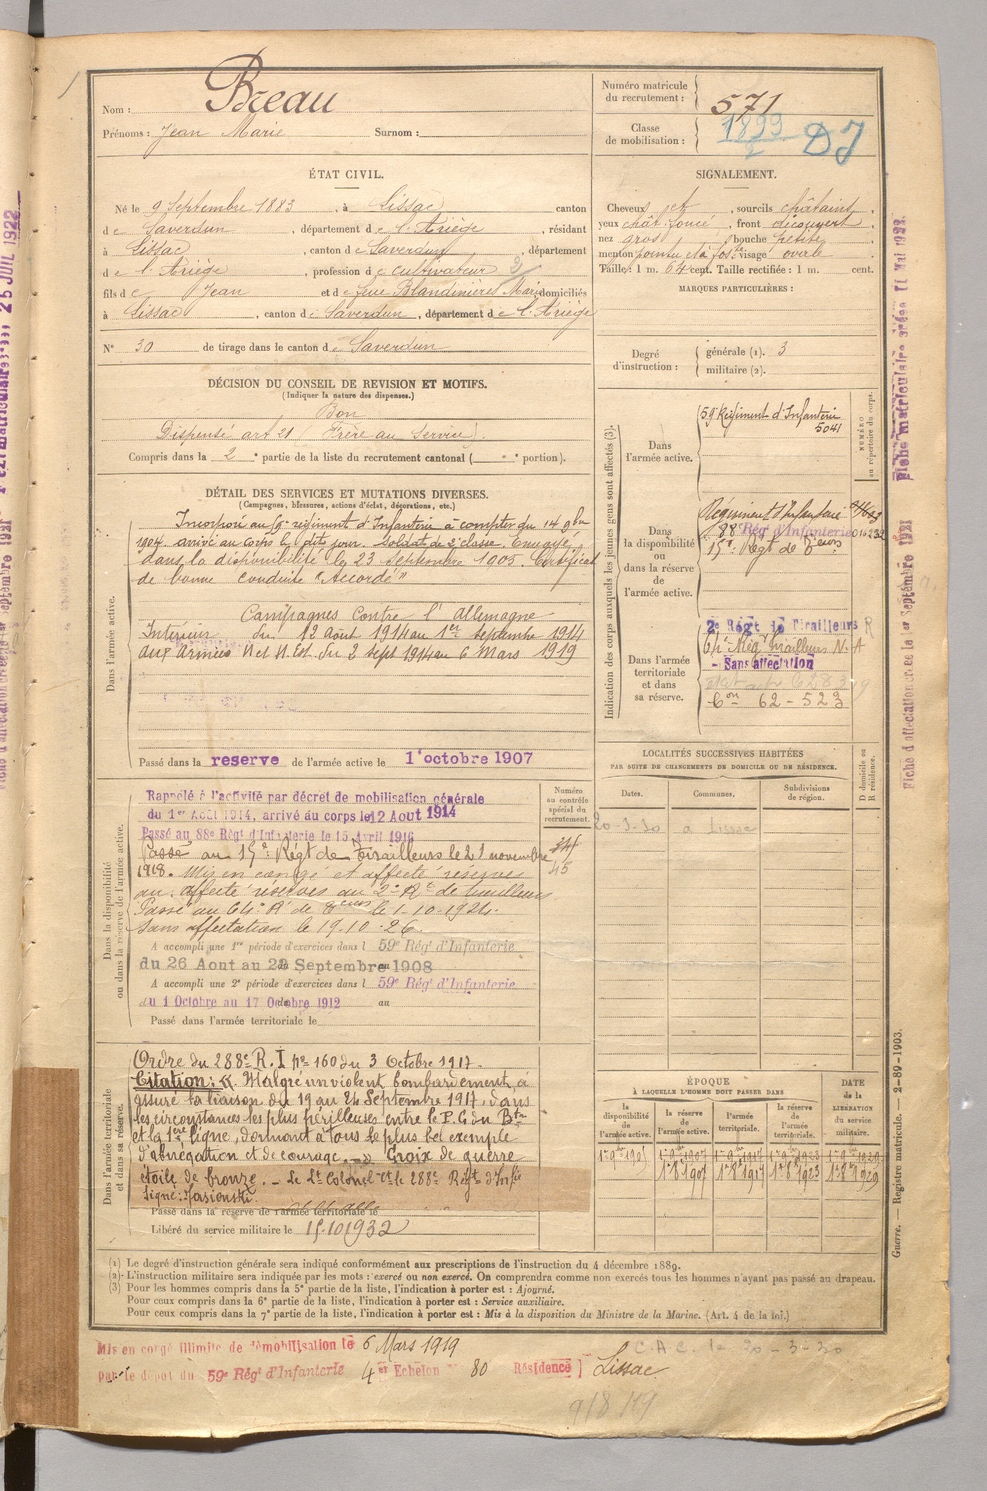 Nom : Breau
Prénoms : Jean Marie Surnom :
Numéro matricule du recrutement : 571
Classe de mobilisation : 1899 2 DJ
ÉTAT CIVIL.
Né le 9 Septembre 1883, à Lissac canton
de Saverdun, département de l'Ariège, résidant
à Lissac, canton de Saverdun, département
de l'Ariège, profession de cultivateur
fils de Jean et de feue Blandinières Marie domiciliés
à Lissac, canton de Saverdun, département de l'Ariège
N° 30 de tirage dans le canton de Saverdun
SIGNALEMENT.
Cheveux jet, sourcils châtains,
yeux chât. foncé, front découvert,
nez gros, bouche petite,
menton pointu et à fos.tte visage ovale.
Taille : 1 m. 64 cent. Taille rectifiée : 1 m. cent.
MARQUES PARTICULIÈRES :
Degré d'instruction : générale (1). 3
militaire (2).
DÉCISION DU CONSEIL DE REVISION ET MOTIFS.
(Indiquer la nature des dispenses.)
Bon
Dispensé art 21 Frère au Service).
Compris dans la 2e partie de la liste du recrutement cantonal ( e portion).
DÉTAIL DES SERVICES ET MUTATIONS DIVERSES.
(Campagnes, blessures, actions d'éclat, décorations, etc.)
Dans l'armée active.
Incorporé au 59e régiment d'Infanterie à compter du 14 9bre
1904. arrivé au Corps le dit jour. soldat de 2e classe. Envoyé
dans la disponibilité le 23 Septembre 1905. Certificat
de bonne conduite "Accordé"
Campagnes Contre l'Allemagne
Intérieur du 12 août 1914 au 1er Septembre 1914
aux armées N et N.Est. du 2 Sept 1914 au 6 Mars 1919
Passé dans la reserve de l'armée active le 1er octobre 1907
Indication des corps auxquels les jeunes gens sont affectés (3).
NUMÉRO au répertoire du corps.
Dans l'armée active.
59e Régiment d'Infanterie
5041
Dans la disponibilité ou dans la réserve de l'armée active.
Régiment d'Infanterie
88e Rég' d'Infanterie 016232
15e Régt de Teurs
Dans l'armée territoriale et dans sa réserve.
2e Régt de Tirailleurs
64e Rég' Tirailleurs N. A
- Sans affectation
62 - 523
LOCALITÉS SUCCESSIVES HABITÉES
PAR SUITE DE CHANGEMENTS DE DOMICILE OU DE RÉSIDENCE.
Dates. Communes. Subdivisions de région. D domicile ou R résidence.
20-3-30 à Lissac
Dans la disponibilité ou dans la réserve de l'armée active.
Numéro au contrôle spécial du recrutement.
45
Rappelé à l'activité par décret de mobilisation générale
du 1er Août 1914, arrivé au corps le 12 Aout 1914
Passé au 88e Rég' d'Infanterie le 15 Avril 1916
Passé au 15e Régt de Tirailleurs le 21 novembre
1918. Mis en congé et affecté réserves
au. affecté réserves au 2e Rt de tirailleurs
Passé au 64e Rt de Teurs le 1-10-1924.
Sans affectation le 19.10.26
A accompli une 1re période d'exercices dans l 59e Rég' d'Infanterie
du 26 Aout au 22 Septembre 1908
A accompli une 2e période d'exercices dans l 59e Rég' d'Infanterie
du 1 Octobre au 17 Octobre 1912 au
Passé dans l'armée territoriale le
Dans l'armée territoriale et dans sa réserve.
Ordre du 288e R. I no 160 du 3 Octobre 1917.
Citation: « Malgré un violent bombardement, a
assuré la liaison du 19 au 24 Septembre 1917, dans
les circonstances les plus périlleuses entre le P.C. du Bon
et la 1ère ligne, donnant à tous le plus bel exemple
d'abnégation et de courage. » Croix de guerre
étoile de bronze. - Le Lt Colonel Ct le 288e Régt d'Infie
Signé:
Passé dans la réserve de l'armée territoriale le
Libéré du service militaire le 15.10 1932
ÉPOQUE
À LAQUELLE L'HOMME DOIT PASSER DANS
DATE de la LIBÉRATION du service militaire.
la disponibilité de l'armée active. la réserve de l'armée active. l'armée territoriale. la réserve de l'armée territoriale.
(1) Le degré d'instruction générale sera indiqué conformément aux prescriptions de l'instruction du 4 décembre 1889.
(2) L'instruction militaire sera indiquée par les mots : exercé ou non exercé. On comprendra comme non exercés tous les hommes n'ayant pas passé au drapeau.
(3) Pour les hommes compris dans la 5e partie de la liste, l'indication à porter est : Ajourné.
Pour ceux compris dans la 6e partie de la liste, l'indication à porter est : Service auxiliaire.
Pour ceux compris dans la 7e partie de la liste, l'indication à porter est : Mis à la disposition du Ministre de la Marine. (Art. 4 de la loi.)
Mis en congé illimité de démobilisation le 6 Mars 1919
Par le dépôt du 59e Rég' d'Infanterie 4e Echelon 80 Résidence ] Lissac
C.A.C. le 20-3-30
Guerre. — Registre matricule. — 2-89-1903.